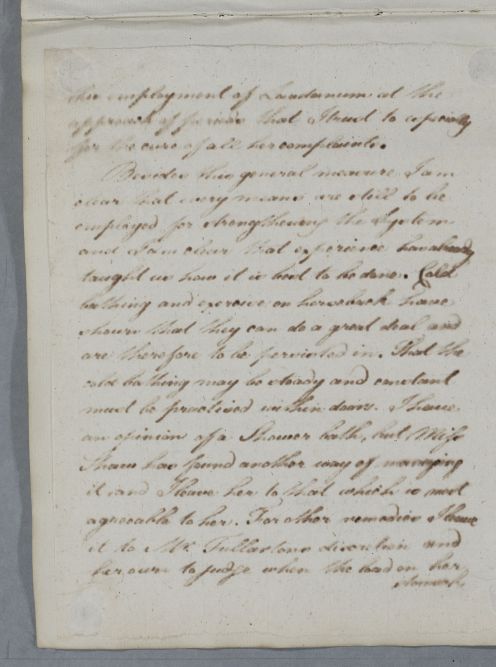 the employment of Laudanum at the
approach of fevers that I trust to especially
for the cure of all her complaints.
Besides this general measure I am
clear that every means are still to be
employed for strengthening the System
and I am clear that experience has already
taught us how it is best to be done. Cold
bathing and exercise on horseback have
shown that they can do a great deal and
are therefore to be persisted in. That the
cold bathing may be steady and constant
must be practised within doors. I have
an opinion of a Shower bath, but Miss
Shaw has found another way of managing
it and I leave her to that which is most
agreeable to her. For other remedies I leave
it to Mr Fullartons discretion and
her own to judge when the load on her
stomach